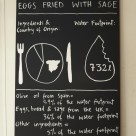 EGGS FRIED WITH SAGE
Ingredients & Water Footprint:
Country of Origin:
732 l
Olive oil from Spain:
49% of the water footprint
Eggs, bread & sage from the UK:
36% of the water footprint
Other ingredients:
5% of the water footprint